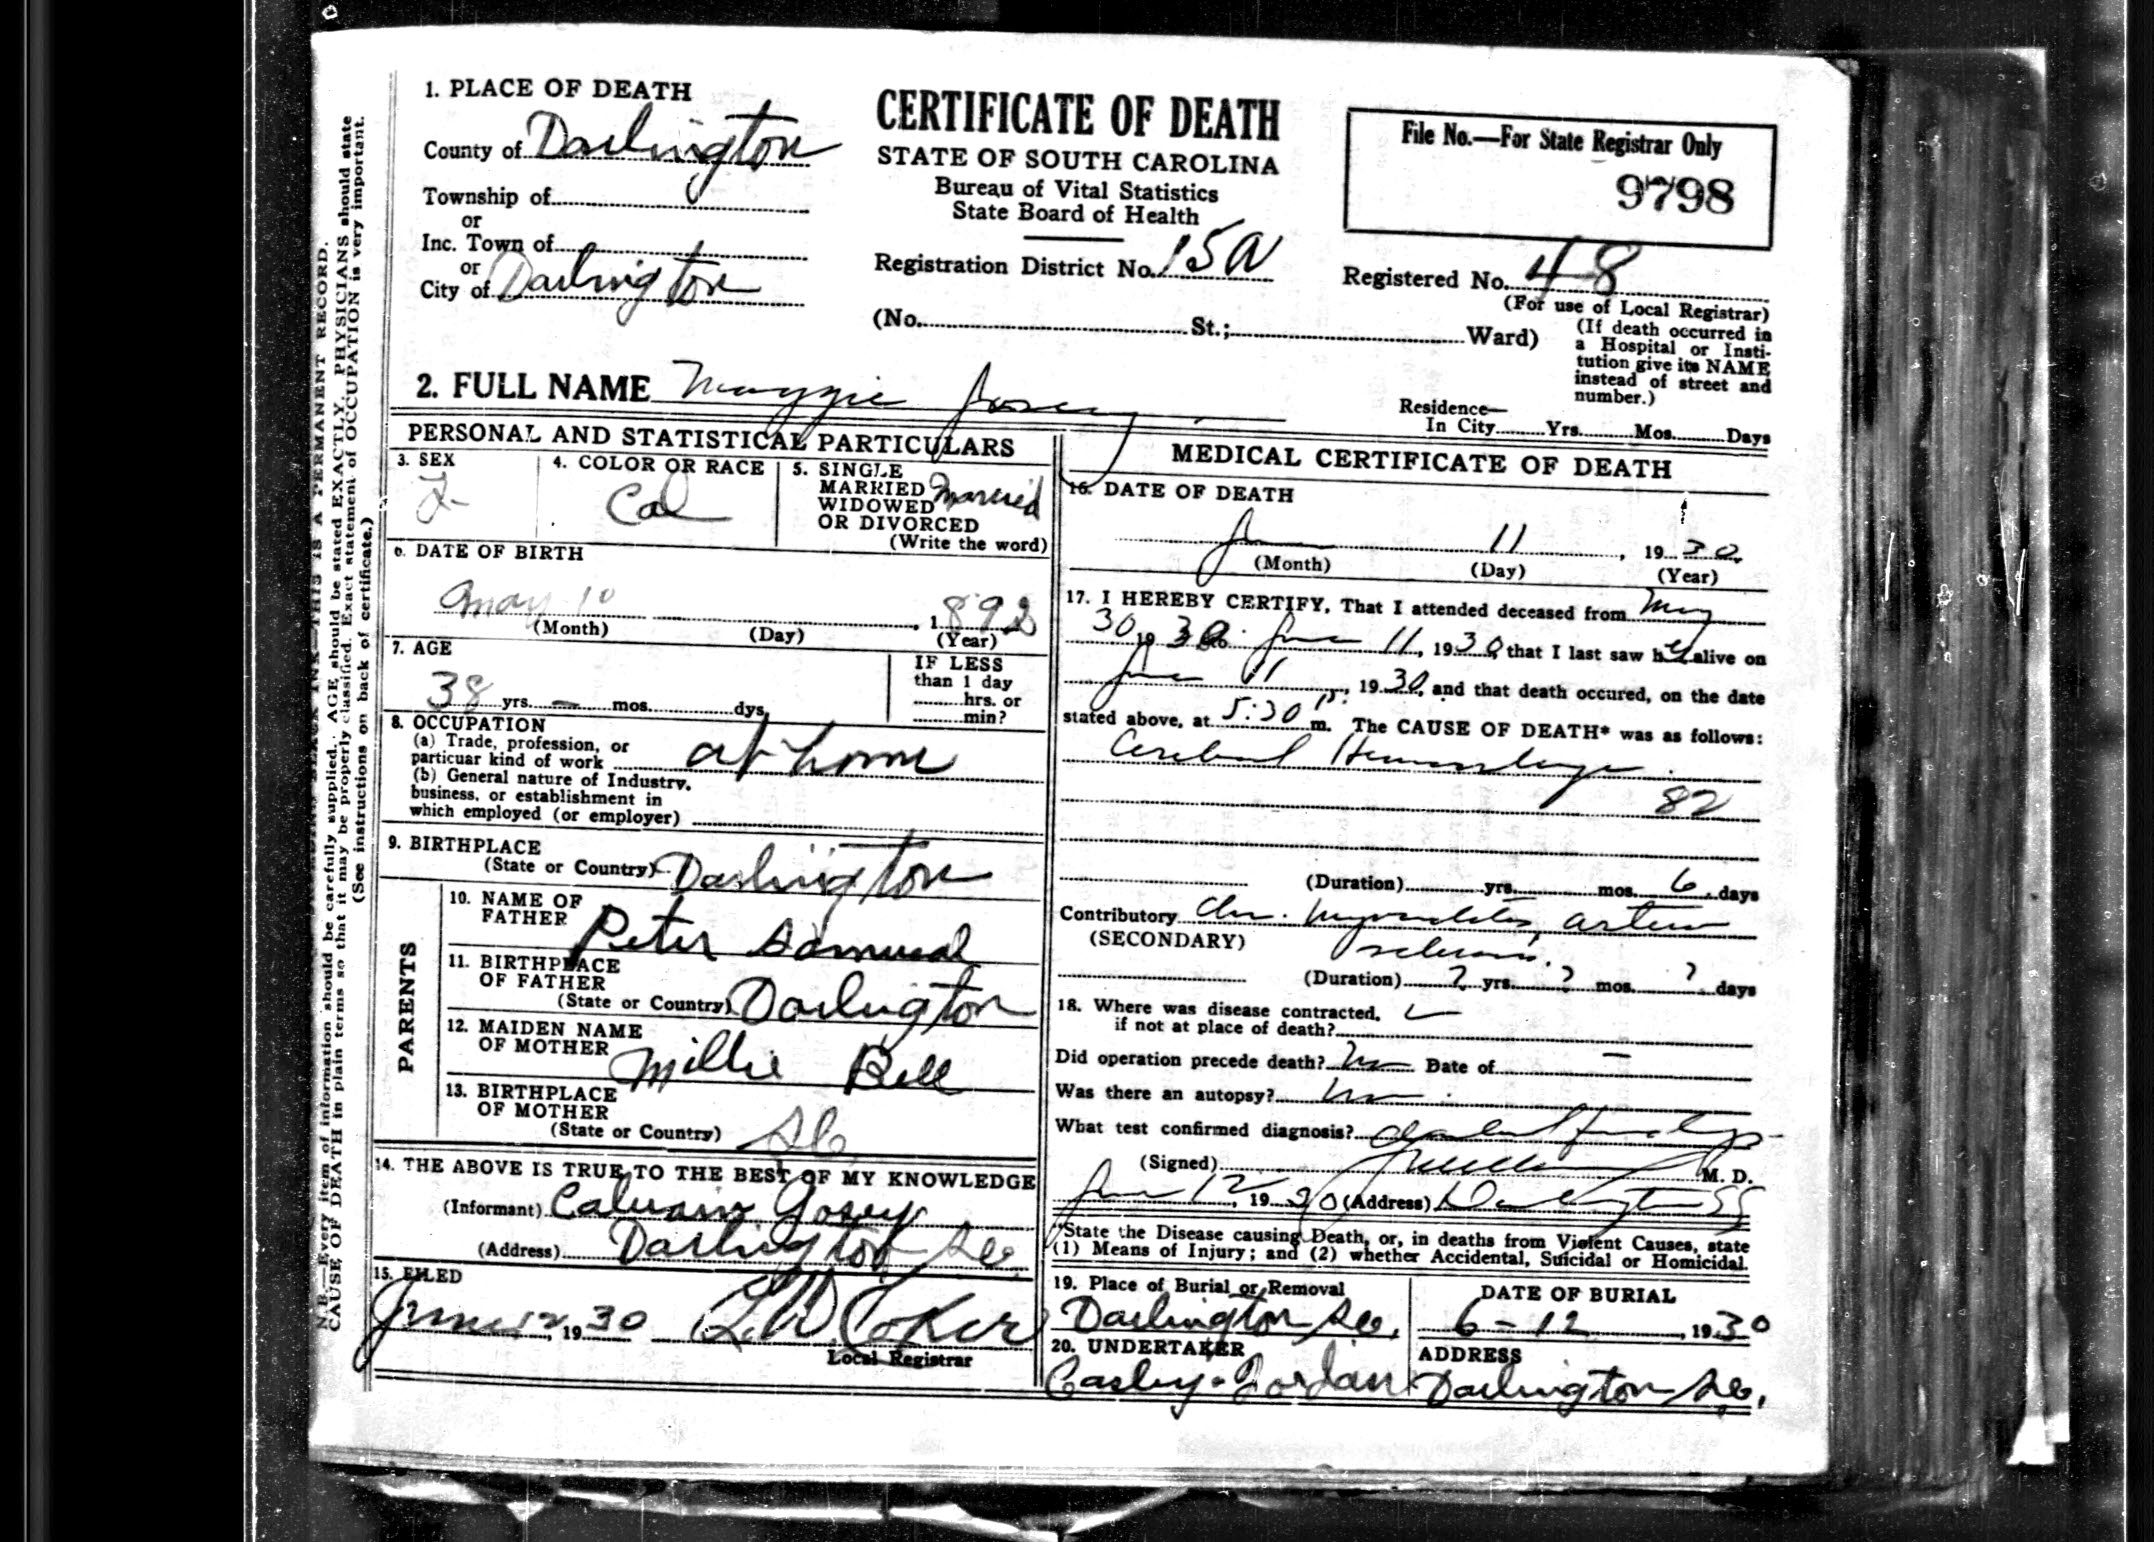 1. PLACE OF DEATH
County of Darlington
Township of
or
Inc. Town of
or
City of Darlington
CERTIFICATE OF DEATH
STATE OF SOUTH CAROLINA
Bureau of Vital Statistics
State Board of Health
Registration District No. 15A
File No.—For State Registrar Only
9798
Registered No. 48
(For use of Local Registrar)
(No. St.; Ward)
(If death occurred in
a Hospital or Insti-
tution give its NAME
instead of street and
number.)
2. FULL NAME Maggie Josey
Residence—
In City Yrs. Mos. Days
PERSONAL AND STATISTICAL PARTICULARS
3. SEX
F
4. COLOR OR RACE
Col
5. SINGLE
MARRIED
WIDOWED
OR DIVORCED
(Write the word)
Married
6. DATE OF BIRTH
May 10, 1892
(Month) (Day) (Year)
7. AGE
38 yrs. — mos. dys.
IF LESS
than 1 day
hrs. or
min?
8. OCCUPATION
(a) Trade, profession, or
particuar kind of work at home
(b) General nature of Industry,
business, or establishment in
which employed (or employer)
9. BIRTHPLACE
(State or Country) Darlington
PARENTS
10. NAME OF
FATHER Peter Samuel
11. BIRTHPLACE
OF FATHER
(State or Country) Darlington
12. MAIDEN NAME
OF MOTHER Millie Bell
13. BIRTHPLACE
OF MOTHER
(State or Country) S.C.
14. THE ABOVE IS TRUE TO THE BEST OF MY KNOWLEDGE
(Informant) Calvain Josey
(Address) Darlington S.C.
15. FILED
June 12, 1930 Coker
Local Registrar
MEDICAL CERTIFICATE OF DEATH
16. DATE OF DEATH
June 11, 1930
(Month) (Day) (Year)
17. I HEREBY CERTIFY, That I attended deceased from May
30, 1930 to June 11, 1930, that I last saw her alive on
June 11, 1930, and that death occured, on the date
stated above, at 5:30 P. m. The CAUSE OF DEATH* was as follows:
Cerebral Hemorrhage
82
(Duration) yrs. mos. 6 days
Contributory Chr. Myocarditis, arterio
(SECONDARY) sclerosis.
(Duration) ? yrs. ? mos. ? days
18. Where was disease contracted,
if not at place of death?
Did operation precede death? No Date of —
Was there an autopsy? No
What test confirmed diagnosis? findings
(Signed) M. D.
June 12, 1930 (Address) Darlington SC
*State the Disease causing Death, or, in deaths from Violent Causes, state
(1) Means of Injury; and (2) whether Accidental, Suicidal or Homicidal.
19. Place of Burial or Removal
Darlington S.C.
DATE OF BURIAL
6-12, 1930
20. UNDERTAKER
Jordan
ADDRESS
Darlington S.C.
THIS IS A PERMANENT RECORD.
N. B.—Every item of information should be carefully supplied. AGE should be stated EXACTLY. PHYSICIANS should state
CAUSE OF DEATH in plain terms so that it may be properly classified. Exact statement of OCCUPATION is very important.
(See instructions on back of certificate.)